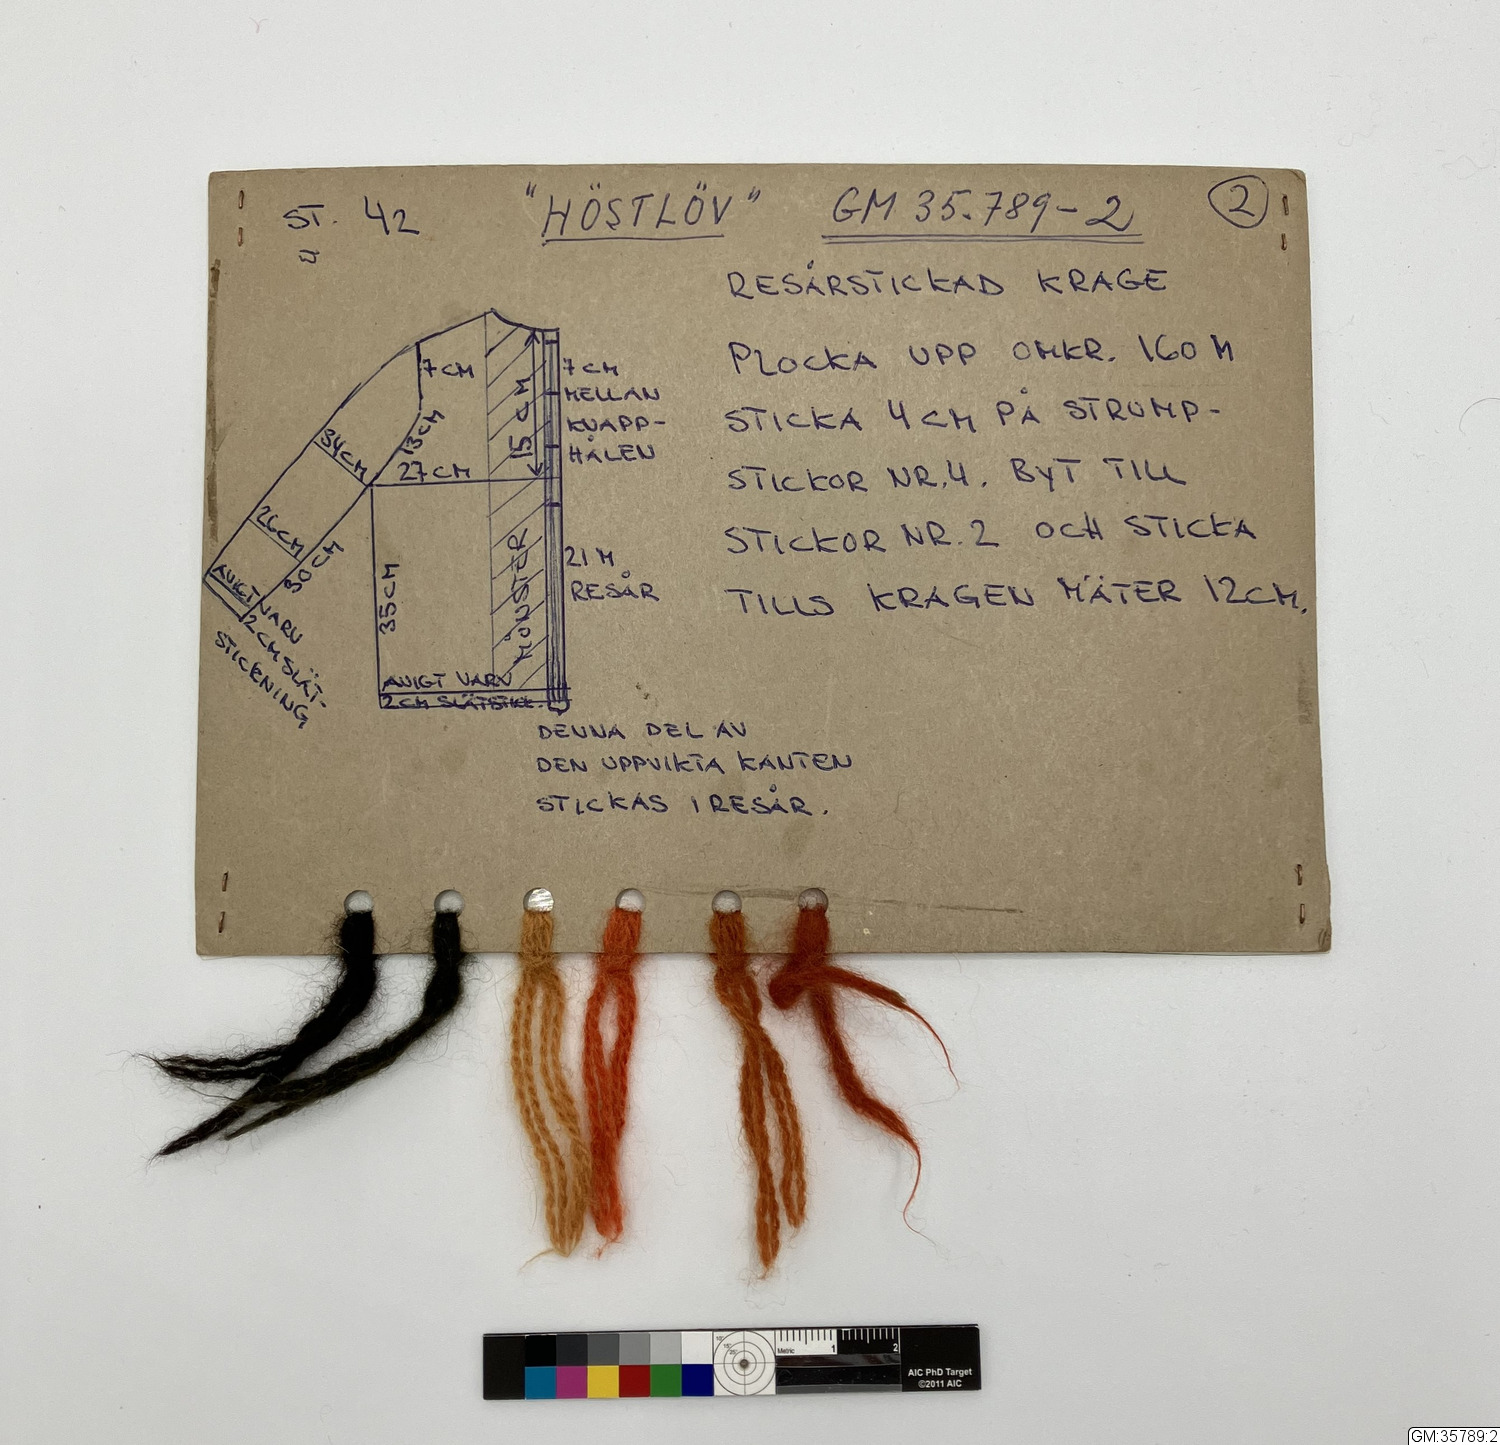 ST. 42
"HÖSTLÖV"
GM 35.789-2
2
RESÅRSTICKAD KRAGE
PLOCKA UPP OMKR. 160 M
STICKA 4 CM PÅ STRUMP-
STICKOR NR. 4. BYT TILL
STICKOR NR. 2 OCH STICKA
TILLS KRAGEN MÄTER 12CM.
7CM
13CM
34CM
27CM
15 CM
7CM
MELLAN
KNAPP-
HÅLEN
26CM
50CM
AVIGT VARV
2CM SLÄT-
STICKNING
35CM
MÖNSTER
21 M
RESÅR
AVIGT VARV
2CM SLÄTSTICK.
DENNA DEL AV
DEN UPPVIKTA KANTEN
STICKAS I RESÅR.
Metric
1
2
AIC PhD Target
©2011 AIC
GM:35789:2